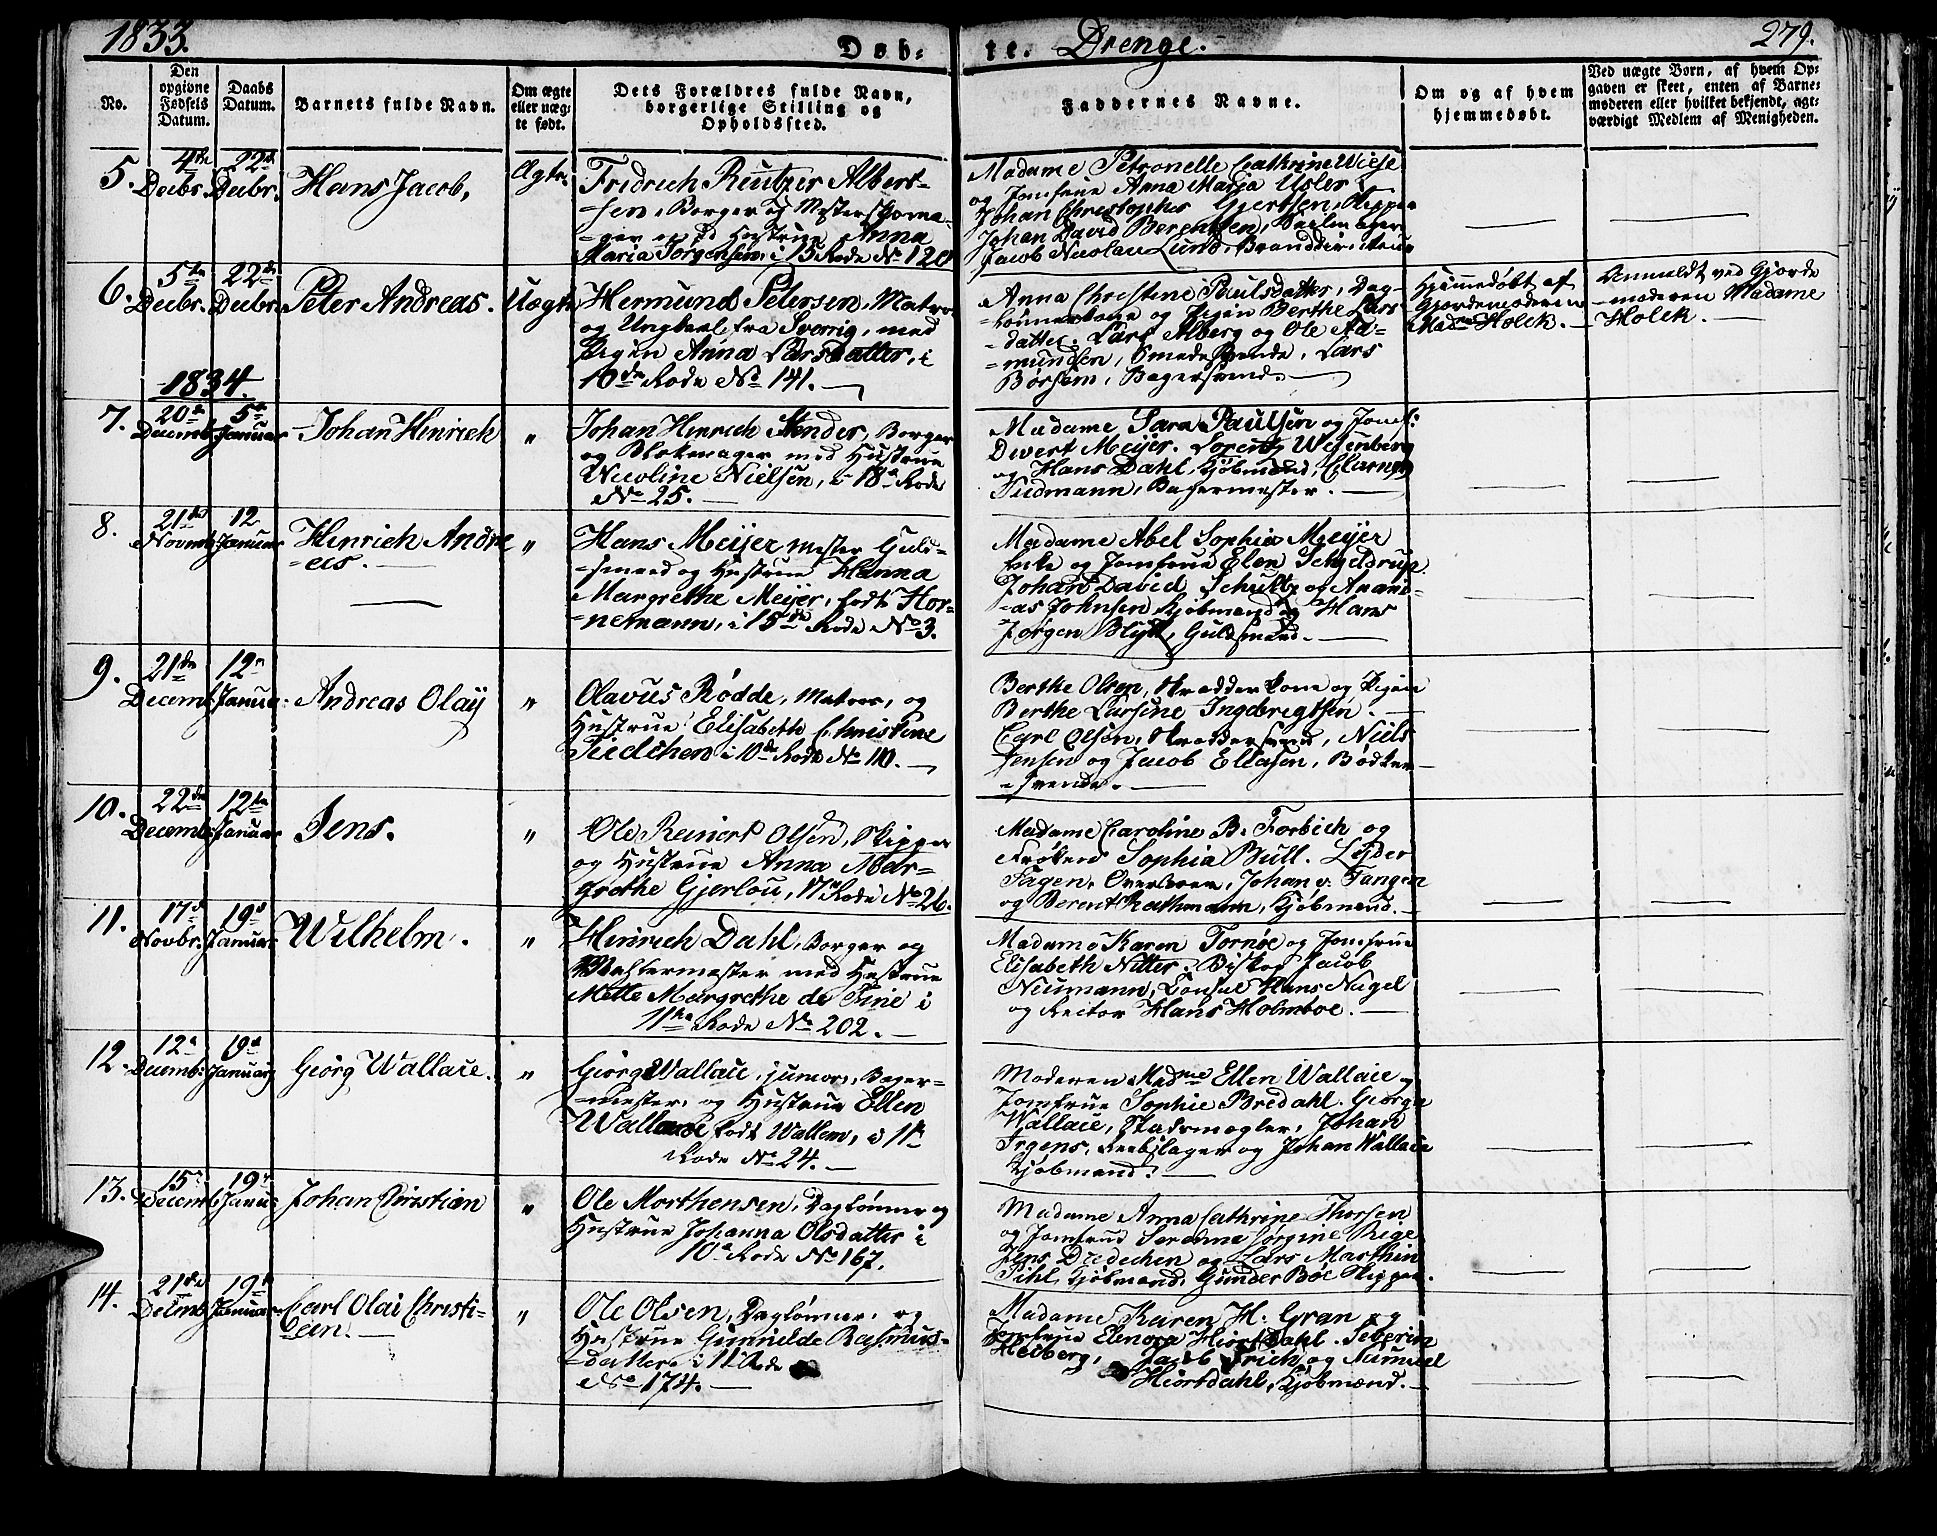 1833.
Døb-
te. Drenge.
279.
No.
Den
opgivne
Fødsels
Datum.
Daabs
Datum.
Barnets fulde Navn.
Om ægte
eller uæg-
te født.
Dets Forældres fulde Navn,
borgerlige Stilling og
Opholdssted.
Faddernes Navne.
Om og af hvem
hjemmedøbt.
Ved uægte Børn, af hvem Op-
gaven er skeet, enten af Barne-
moderen eller hvilket bekjendt, agt-
værdigt Medlem af Menigheden.
5. 4de Decbr. 22de Decbr. Hans Jacob, Ægte.
Fredrich Reutzer Albert-
-sen, Borger og Mester Skoma-
-ger med Hustrue Anna
Maria Jørgensen, i 15 Rode No 120
Madame Petronelle Cathrine Wiese
og Jomfrue Anna Maria Usler
Johan Christopher Gjertsen, Skipper
Johan David Berentsen, Seilmager
Jacob Nicolau Lund, Branddirecteur
6. 5te Decbr. 22de Decbr. Peter Andreas. Uægte
Hermund Petersen, Matros
og Ungkarl fra Sverrig, med
Pigen Anna Larsdatter, i
10de Rode No 141.
Anna Christine Paulsdatter, Dag-
-lønnerkone og Pigen Berthe Lars-
datter. Lars Alberg og Ole Ad-
-mundsen, Smedesvende, Lars
Børsem, Bagersvend.
Hjemmedøbt af
Gjordemoderen
Madme Holck.
Anmeldt ved Gjorde
-moderen Madame
Holck.
1834.
7. 20de Decemb. 5te Januar Johan Hinrich "
Johan Hinrich Stender, Borger
og Blokmager med Hustrue
Nicoline Nielsen, i 18de Rode
No 25.
Madame Sara Paulsen og Jomf:
Divert Meijer. Lorentz Wesenberg
og Hans Dahl, Kjøbmænd,
Tiedmann, Bagermester.
8. 21de Novmb. 12 Januar Hinrich Andre
-as. "
Hans Meijer mester Guld-
-smed og Hustrue Hanna
Margrethe Meijer, født Hor-
-nemann, i 15de Rode No 3.
Madame Abel Sophia Meijer
Enke og Jomfrue Elen Schjeldrup
Johan David Schultz og Anani-
-as Johnsen Kjøbmænd og Hans
Jørgen Blytt, Guldsmed.
9. 21de Decemb. 12te Januar Andreas Olaij "
Olavus Rødde, Matros, og
Hustrue Elisabeth Christine
Tiedchen i 10de Rode No 110.
Berthe Olsen, Skrædderkone og Pigen
Berthe Larsine Ingebrigtsen.
Carl Olsen, Skræddersvend, Niels
Jensen og Jacob Eliasen, Bødker-
-svende.
10. 22de Decemb. 12te Januar Jens. "
Ole Reinert Olsen, Skipper
og Hustrue Anna Mar-
grethe Gjerlou, 17de Rode No 26.
Madame Caroline B. Forbich og
Frøken Sophia Bull. Lyder
Fagen, Overlærer, Johan v. Tangen
og Berent Rathmann, Kjøbmænd.
11. 17de Novbr. 19de Januar Wilhelm. "
Hinrich Dahl, Borger og
Maltermester med Hustrue
Mette Margrethe de Fine i
11te Rode No 202.
Madame Karen Tornøe og Jomfrue
Elisabeth Nitter. Biskop Jacob
Neumann, Consul Hans Nagel
og Rector Hans Holmboe.
12. 12te Decemb: 19de Januarij Georg Wallace. "
Georg Wallace, junior, Bager-
-mester, og Hustrue Ellen
Wallace født Wallem, i 11te
Rode No 24.
Moderen Madme Ellen Wallace og
Jomfrue Sophie Bredahl. George
Wallace, Stadsmægler, Johan
Irgens, Reebslager og Johan Wallace
Kjøbmænd.
13. 15de Decemb 19de Januar Johan Christian "
Ole Morthensen, Dagløner og
Hustrue Johanna Olsdatter i
10de Rode No 167.
Madame Anna Cathrine Thorsen
og Jomfrue Serenna Jørgine Rige
Jens Dudechen og Lars Marthin
Pihl, Kjøbmænd, Gunder Bøe Skipper.
14. 21de Decmb 19de Januar Carl Olai Christi-
-een. "
Ole Olsen, Dagløner, og
Hustrue Gunnilde Rasmus-
-datter i 11te Rode
No 174.
Madame Karen H. Gran og
Jomfrue Elenora Hiortdahl. Severin
Heiberg, Jacob Frich og Numuel
Hiortdahl, Kjøbmænd.